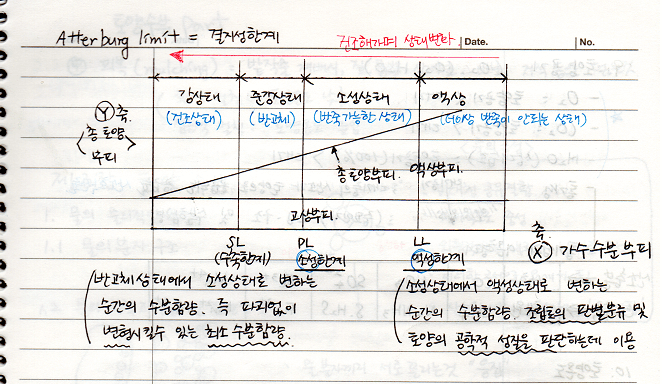 Atterburg limit = 결지성한계
건조해가며 상태변화
Date.
No.
강상태 준강상태 소성상태 액상
(건조상태) (반고체) (반죽가능한 상태) (더이상 반죽이 안되는 상태)
Y축
총토양
부피
총토양부피. 액상부피.
고상부피.
SL PL LL
(수축한계) 소성한계 액성한계
축
X 가수수분부피
반고체상태에서 소성상태로 변하는
순간의 수분함량. 즉 파괴없이
변형시킬수 있는 최소수분함량.
소성상태에서 액성상태로 변하는
순간의 수분함량. 조립토의 판별분류 및
토양의 공학적 성질을 판단하는데 이용